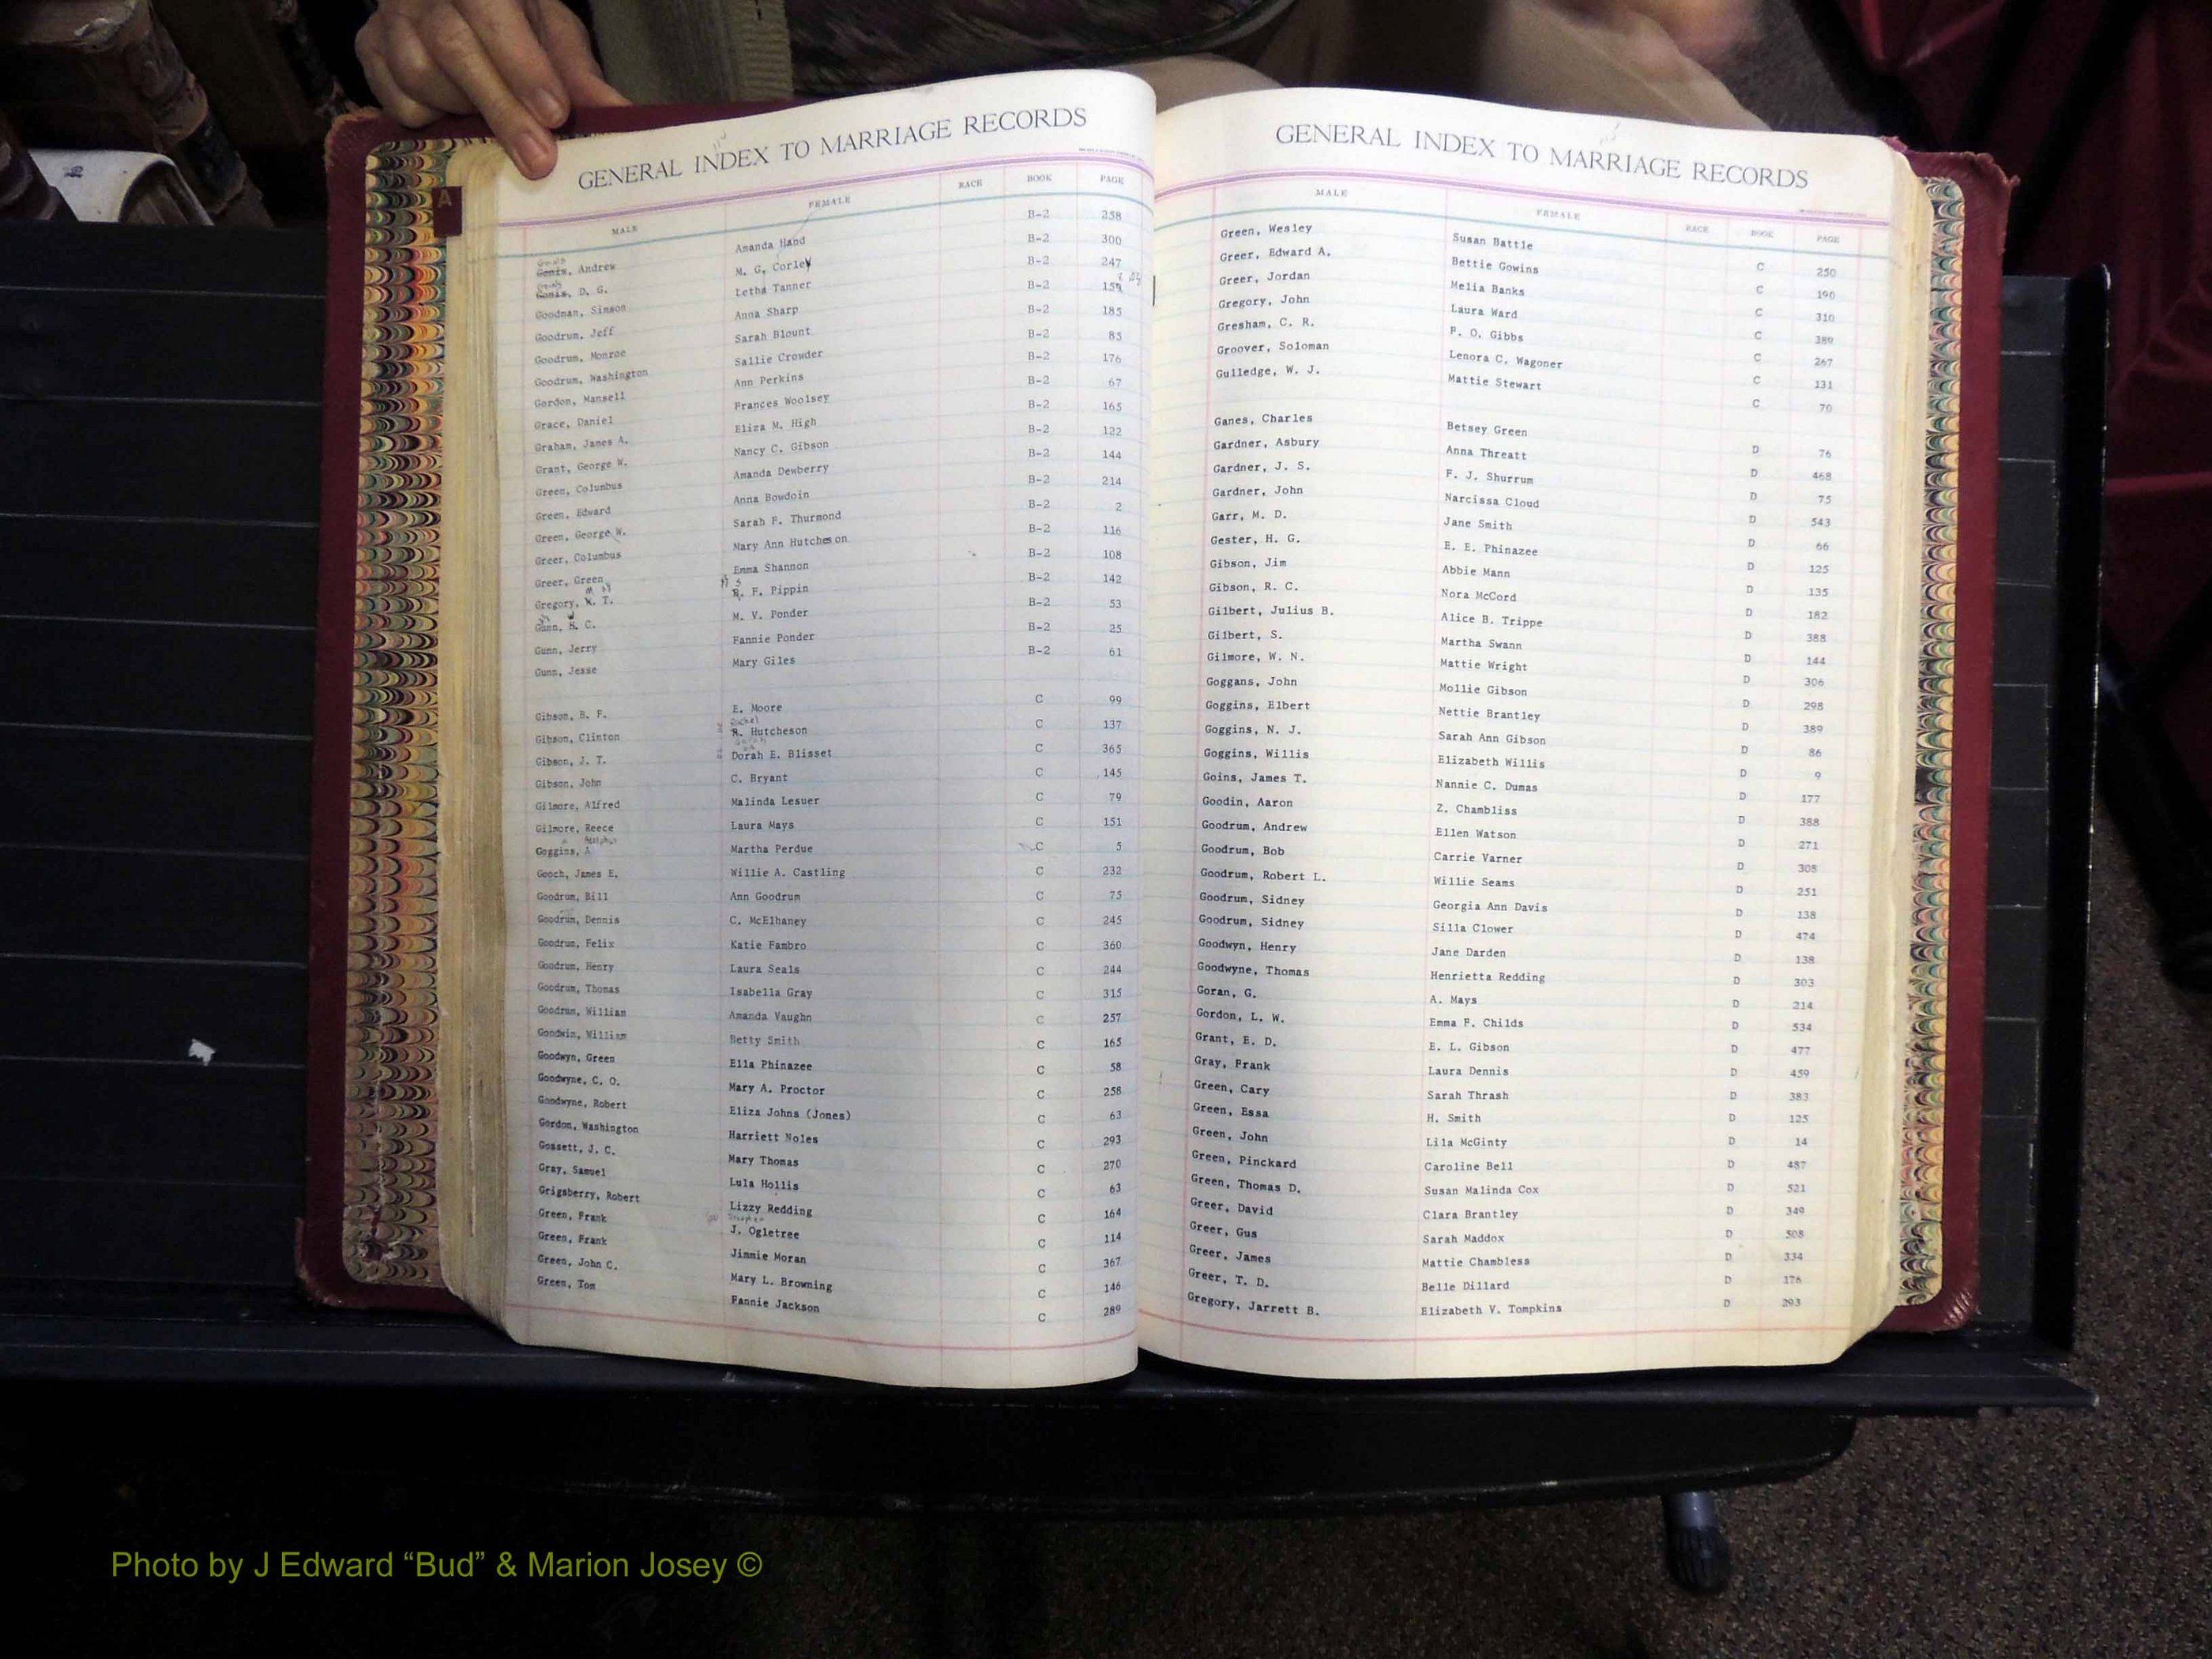 GENERAL INDEX TO MARRIAGE RECORDS
MALE FEMALE RACE BOOK PAGE
Gonis, Andrew Amanda Hand B-2 258
Gonis, D. G. M. G. Corley B-2 300
Goodman, Simson Letha Tanner B-2 247
Goodrum, Jeff Anna Sharp B-2 159
Goodrum, Monroe Sarah Blount B-2 185
Goodrum, Washington Sallie Crowder B-2 85
Gordon, Mansell Ann Perkins B-2 176
Grace, Daniel Frances Woolsey B-2 67
Graham, James A. Eliza M. High B-2 165
Grant, George W. Nancy C. Gibson B-2 122
Green, Columbus Amanda Dewberry B-2 144
Green, Edward Anna Bowdoin B-2 214
Green, George W. Sarah F. Thurmond B-2 2
Greer, Columbus Mary Ann Hutcheson B-2 116
Greer, Green Emma Shannon B-2 108
Gregory, W. T. R. F. Pippin B-2 142
Gunn, H. C. M. V. Ponder B-2 53
Gunn, Jerry Fannie Ponder B-2 25
Gunn, Jesse Mary Giles B-2 61
Gibson, B. F. E. Moore C 99
Gibson, Clinton R. Hutcheson C 137
Gibson, J. T. Dorah E. Blisset C 365
Gibson, John C. Bryant C 145
Gilmore, Alfred Malinda Lesuer C 79
Gilmore, Reece Laura Mays C 151
Goggins, A Martha Perdue C 5
Gooch, James E. Willie A. Castling C 232
Goodrum, Bill Ann Goodrum C 75
Goodrum, Dennis C. McElhaney C 245
Goodrum, Felix Katie Fambro C 360
Goodrum, Henry Laura Seals C 244
Goodrum, Thomas Isabella Gray C 315
Goodrum, William Amanda Vaughn C 257
Goodwin, William Betty Smith C 165
Goodwyn, Green Ella Phinazee C 58
Goodwyne, C. O. Mary A. Proctor C 258
Goodwyne, Robert Eliza Johns (Jones) C 63
Gordon, Washington Harriett Noles C 293
Gossett, J. C. Mary Thomas C 270
Gray, Samuel Lula Hollis C 63
Grigsberry, Robert Lizzy Redding C 164
Green, Frank J. Ogletree C 114
Green, Frank Jimmie Moran C 367
Green, John C. Mary L. Browning C 146
Green, Tom Fannie Jackson C 289
GENERAL INDEX TO MARRIAGE RECORDS
MALE FEMALE RACE BOOK PAGE
Green, Wesley Susan Battle C 250
Greer, Edward A. Bettie Gowins C 190
Greer, Jordan Melia Banks C 310
Gregory, John Laura Ward C 389
Gresham, C. R. F. O. Gibbs C 267
Groover, Soloman Lenora C. Wagoner C 131
Gulledge, W. J. Mattie Stewart C 70
Ganes, Charles Betsey Green D 76
Gardner, Asbury Anna Threatt D 468
Gardner, J. S. F. J. Shurrum D 75
Gardner, John Narcissa Cloud D 543
Garr, M. D. Jane Smith D 66
Gester, H. G. E. E. Phinazee D 125
Gibson, Jim Abbie Mann D 135
Gibson, R. C. Nora McCord D 182
Gilbert, Julius B. Alice B. Trippe D 388
Gilbert, S. Martha Swann D 144
Gilmore, W. N. Mattie Wright D 306
Goggans, John Mollie Gibson D 298
Goggins, Elbert Nettie Brantley D 389
Goggins, N. J. Sarah Ann Gibson D 86
Goggins, Willis Elizabeth Willis D 9
Goins, James T. Nannie C. Dumas D 177
Goodin, Aaron Z. Chambliss D 388
Goodrum, Andrew Ellen Watson D 271
Goodrum, Bob Carrie Varner D 308
Goodrum, Robert L. Willie Seams D 251
Goodrum, Sidney Georgia Ann Davis D 138
Goodrum, Sidney Silla Clower D 474
Goodwyn, Henry Jane Darden D 138
Goodwyne, Thomas Henrietta Redding D 303
Goran, G. A. Mays D 214
Gordon, L. W. Emma F. Childs D 534
Grant, E. D. E. L. Gibson D 477
Gray, Frank Laura Dennis D 459
Green, Cary Sarah Thrash D 383
Green, Essa H. Smith D 125
Green, John Lila McGinty D 14
Green, Pinckard Caroline Bell D 487
Green, Thomas D. Susan Malinda Cox D 521
Greer, David Clara Brantley D 349
Greer, Gus Sarah Maddox D 508
Greer, James Mattie Chambless D 334
Greer, T. D. Belle Dillard D 176
Gregory, Jarrett B. Elizabeth V. Tompkins D 293
Photo by J Edward “Bud” & Marion Josey ©